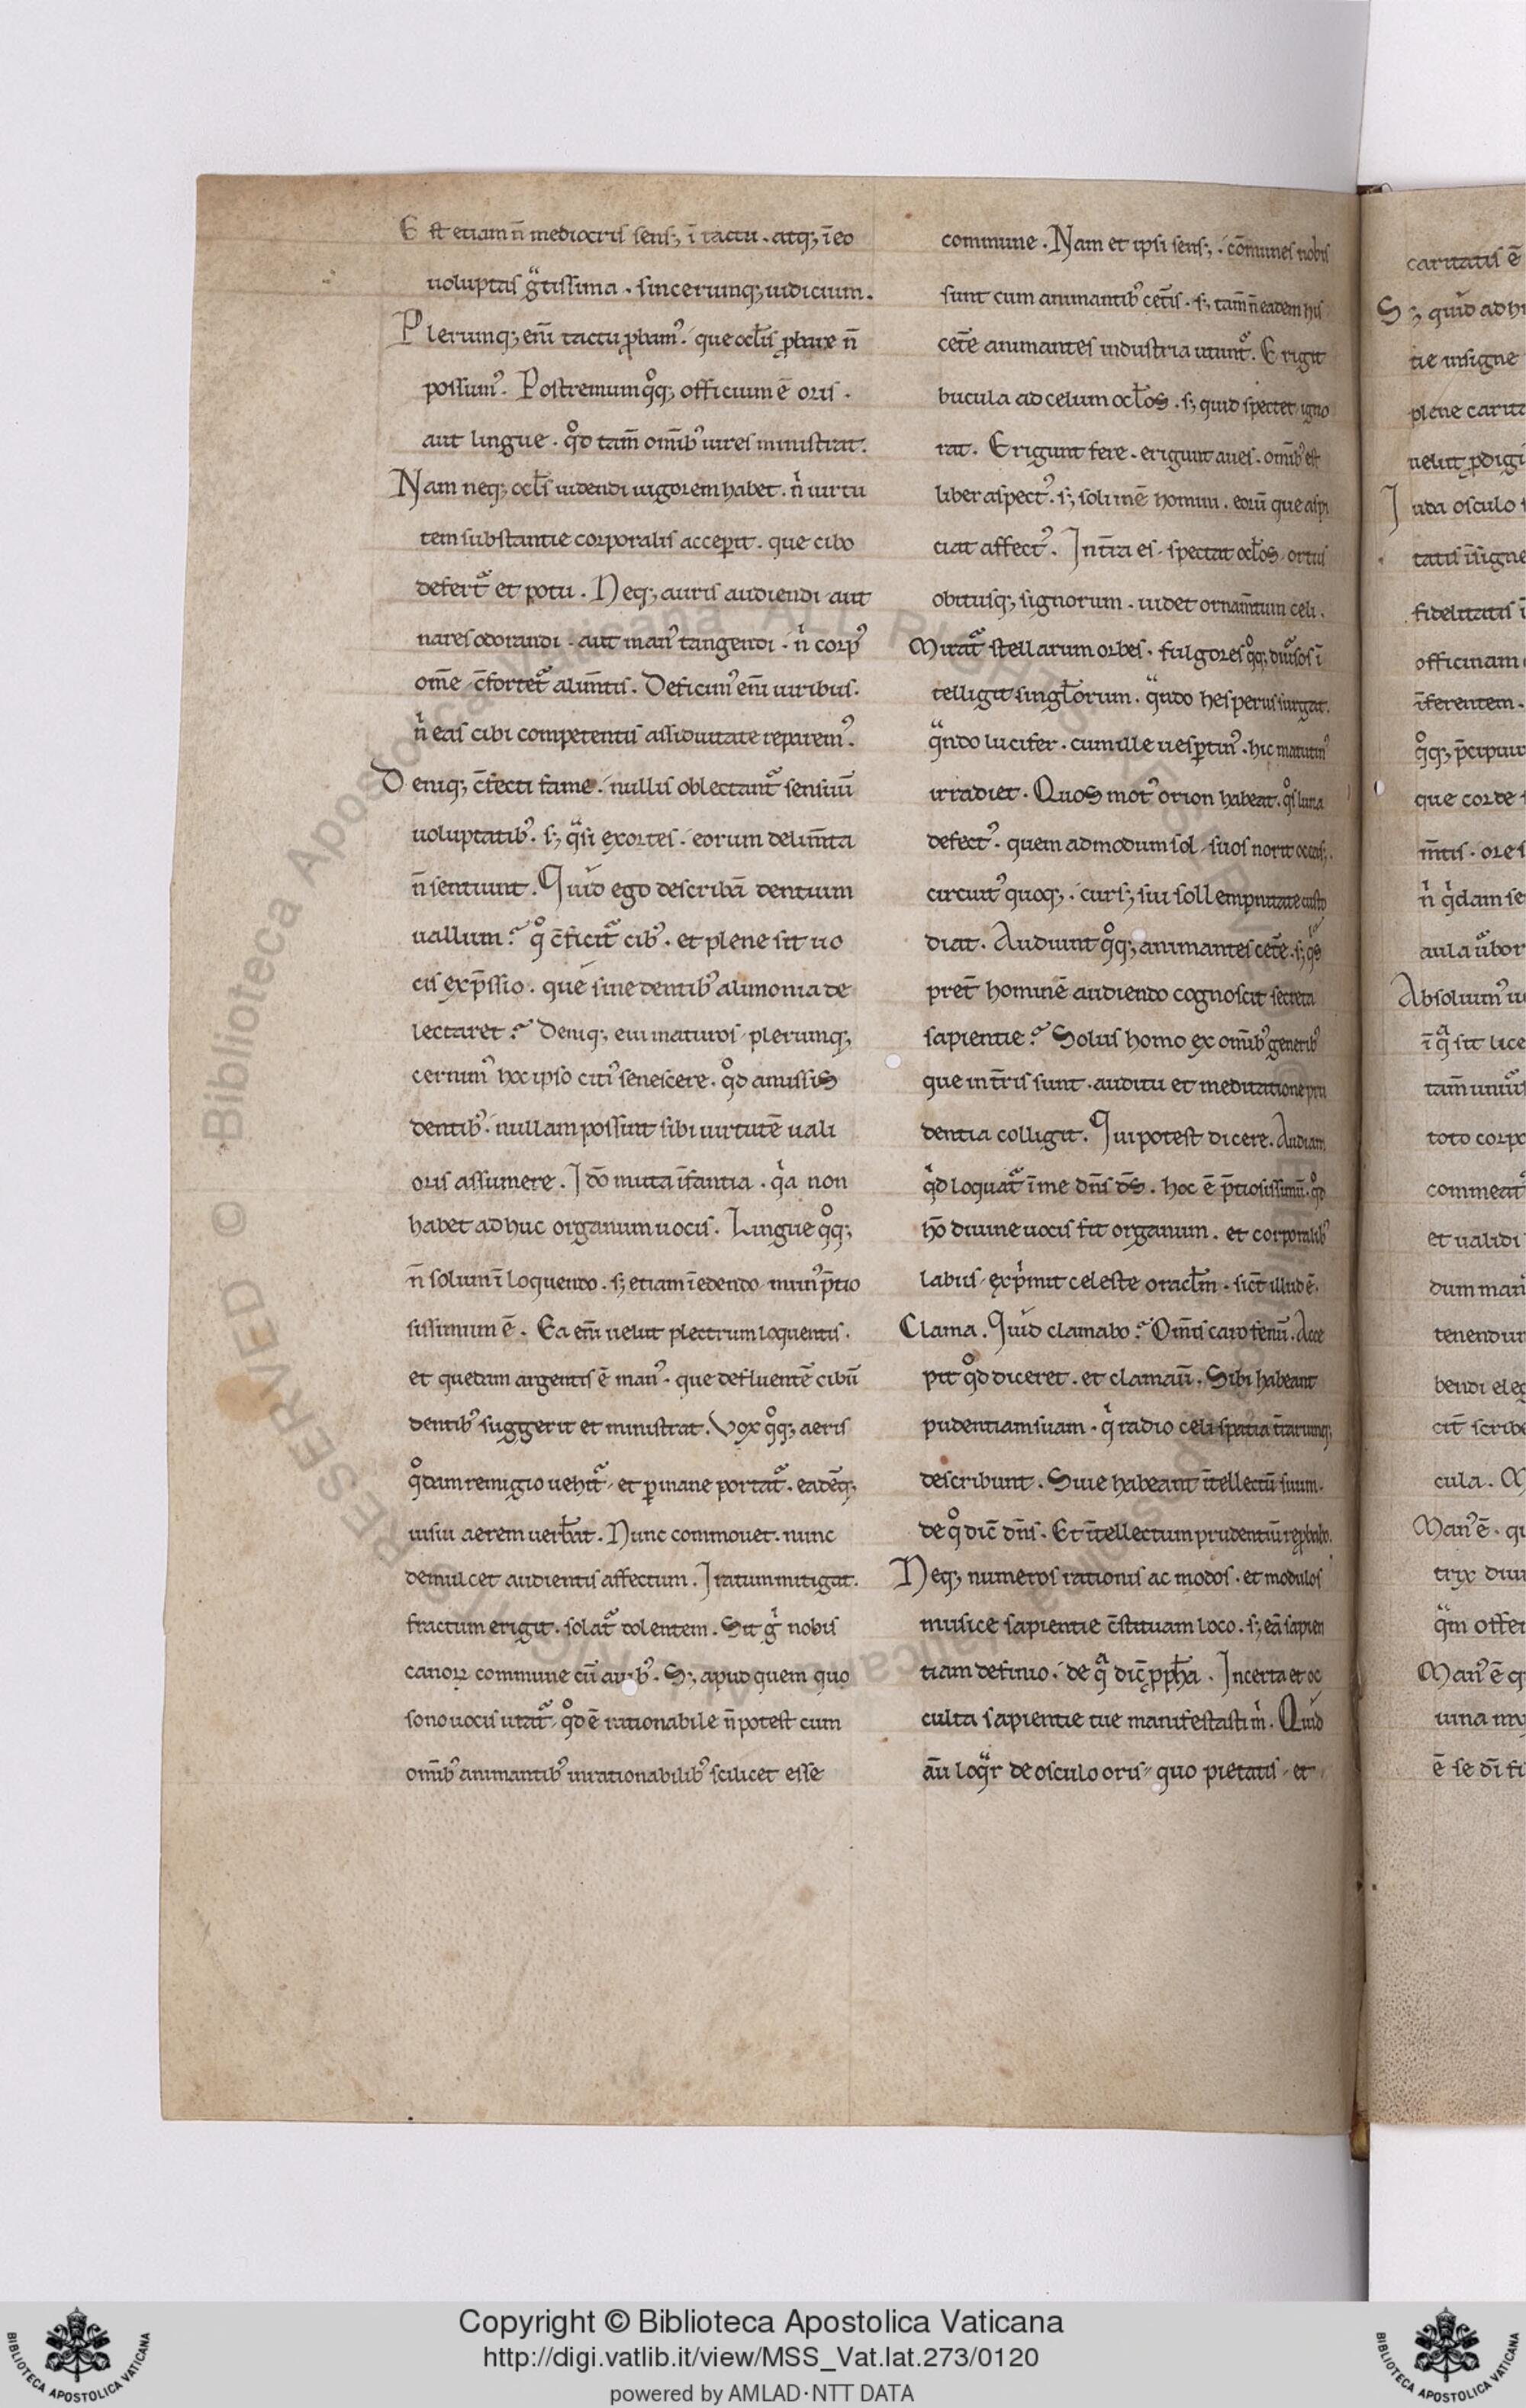 Est etiam n̄ mediocris sens;, ī tactu. atq;, ī eo
uoluptas gᵃtissima. sincerumq; iudicium.
Plerumq;, em̄ tactu ꝓbam᾽. que ocl̄is ꝓbare n̄
possum᾽. Postremum qͦq;, officium ē oris.
aut lingue. qͦd tam̄ om̄ib᾽ uires ministrat.
Nam neq;, ocl̄s uidendi uigorem habet. nⁱ uirtu
tem substantie corporalis acceperit. que cibo
defert᷑ et potu. Neq;, auris audiendi aut
nares odorandi. aut man᾽ tangendi. nⁱ corp᾽
om̄e c̄fortet᷑ alim̄tis. Deficim᾽ em̄ uiribus.
nⁱ eas cibi competentis assiduitate reparem᾽.
Deniq;, c̄fecti fame. nullis oblectant᷑ sensuū
uoluptatib᾽. s;, qᵃsi exortes. eorum delinm̄ta
n̄ sentiunt. Quid ego describā dentium
uallum? qͦ c̄ficit᷑ cib᾽. et plene sit uo
cis exp̄ssio. que sine dentib᾽ alimonia de
lectaret? Deniq;, eui maturos plerumq;,
cernim᾽ hoc ipso citi᾽ senescere. qͦd amissis
dentib᾽. nullam possunt sibi uirtutē uali
oris assumere. Idō muta īfantia. qⁱa non
habet adhuc organum uocis. Lingue qͦq;,
n̄ solum ī loquendo. s;, etiam ī edendo mun᾽ p̄tio
sissimum ē. Ea em̄ uelut plectrum loquentis.
et quedam argentis ē man᾽. que defluentē cibū
dentib᾽ suggerit et ministrat. Vox qͦq;, aeris
qͦdam remigio uehit᷑. et ꝑ inane portat᷑. eadēq;,
uisui aerem uerb̄at. Nunc commouet. nunc
demulcet audientis affectum. Iratum mitigat.
fractum erigit. solat᷑ dolentem. Sit gⁱ nobis
canorꝝ commune cū auib᾽. S;, apud quem quo
sono uocis utat᷑. qͦd ē rationabile n̄ potest cum
om̄ib᾽ animantib᾽ inrationabilib᾽ scilicet esse
commune. Nam et ipsi sens;, cōmunes nobis
sunt cum animantib᾽ cet̄is. s;, tam̄ n̄ eadem his
cet̄e animantes industria utunt᷑. Erigit
bucula ad celum ocl̄os. s;, quid spectet igno
rat. Erigunt fere. erigunt aues. om̄ib᾽ est
liber aspect᾽. s;, soli inē homini. eorū que aspi
ciat affect᾽. Int̄ra es spectat ocl̄os. ortus
obitusq;, signorum. uidet ornam̄tum celi.
Mirat᷑ stellarum orbes. fulgores qͦq;, diūsos ī
telligit singl̄orum. qᵃndo hesperus surgat.
qᵃndo lucifer. cum ille uesꝑtin᾽. hic matutin᾽
irradiet. Quos mot᾽ orion habeat. qͦs luna
defect᾽. quem admodum sol suos norit occas;,.
circuit᾽ quoq;,. curs;, sui sollempnitate custo
diat. Audiunt qͦq;, animantes cet̄e. s;, qⁱs
pret̄ hominē audiendo cognoscit secreta
sapientie? Solus homo ex om̄ib᾽ generib᾽
que in t̄ris sunt. auditu et meditatione pru
dentia colligit. Qui potest dicere. Audiam
qⁱd loquat᷑ ī me dn̄s ds̄. hoc ē p̄tiosissimū. qͦd
hō diuine uocis fit organum. et corporalib᾽
labiis exp̄mit celeste oracl̄m. sict̄ illud ē.
Clama. Quid clamabo? Om̄is caro fenū. Acce
pit qͦd diceret. et clamaū. Sibi habeant
pudentiam suam. qⁱ radio celi spatia t̄rarumq;,
describunt. Sine habeant īntellectū suum.
de qͦ dic̄ dn̄s. Et īntellectum prudentiū reprobabo.
Neq;, numeros rationis ac modos. et modulos
musice sapientie c̄stituam loco. s;, eā sapien
tiam definio. de qᵃ dic̄ pp̄ha. Incerta et oc
culta sapientie tue manifestasti mⁱ. Quid
aū loqᵃr de osculo oris quo pietatis et
caritatis ē
S;, quid ad h
tie insigne
plene carita
uelut ꝓdigi
Iuda osculo
tatis īsigne
fidelitatis
officinam
īferentem.
qͦq;, p̄cipuu
que corde
m̄tis. ore s
nⁱ qⁱdam se
aula ūbor
Absoluim᾽
ī qᵃ sit lice
tam̄ uniū
toto corpo
commeat᾽
et ualidi
dum man
tenendum
bendi eleg
cit̄ scribe
cula. M
Man᾽ ē. qu
trix diui
qᵃm offer
Man᾽ ē q
uina my
ē se dī fi
Copyright © Biblioteca Apostolica Vaticana
http://digi.vatlib.it/view/MSS_Vat.lat.273/0120
powered by AMLAD·NTT DATA
BIBLIOTECA APOSTOLICA VATICANA
BIBLIOTECA APOSTOLICA VATICANA